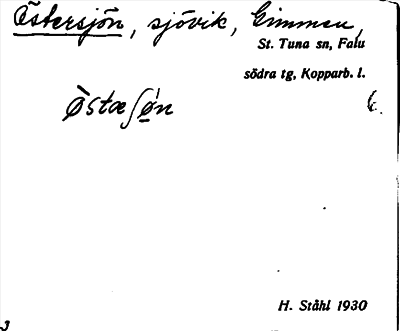 Östersjön, sjövik, Gimmen,
St. Tuna sn, Falu
södra tg, Kopparb. l.
Ø̀stæʃǿ̣n
H. Ståhl 1930